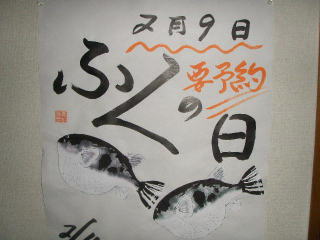 2月9日
ふくの日
要予約
2/